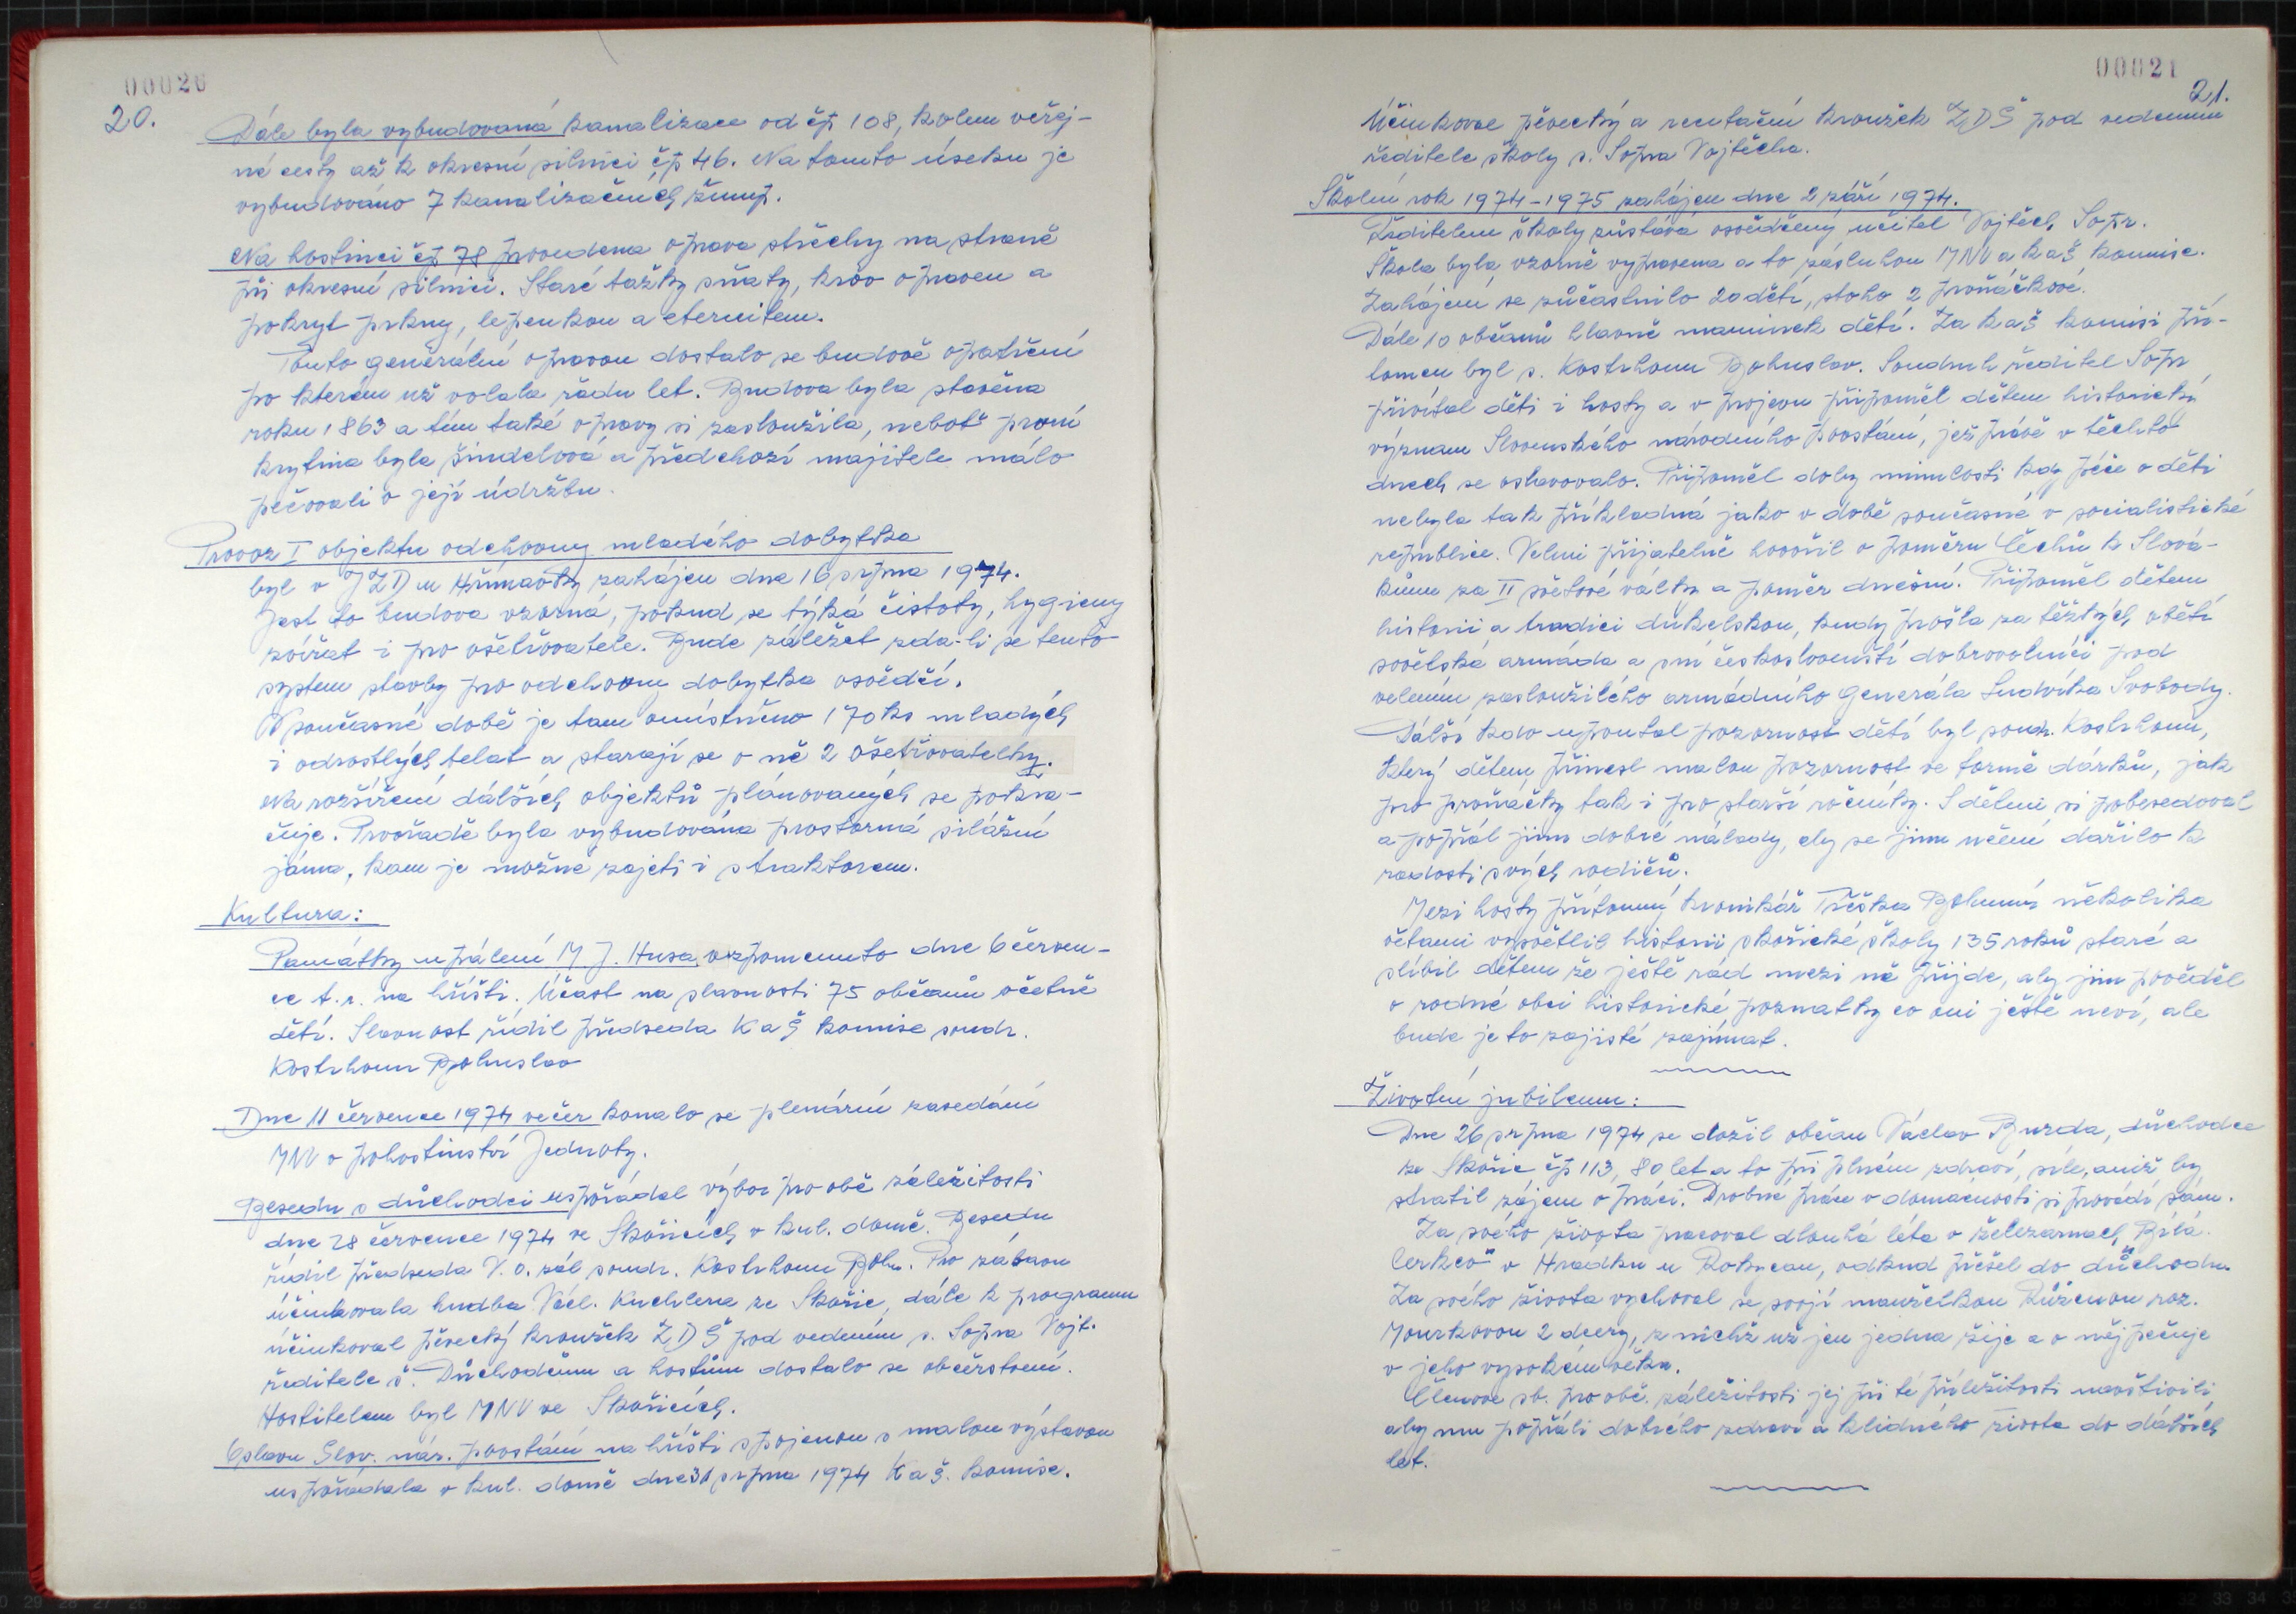 00020
20.
Dále byla vybudovaná kanalizace od čp 108, kolem veřej-
né cesty až k okresní silnici čp 46. Na tomto úseku je
vybudováno 7 kanalizačních žump.
Na hostinci čp 78 provedena oprava střechy na straně
při okresní silnici. Staré tašky sňaty, krov opraven a
pokryt prkny, lepenkou a eternitem.
Touto generální opravou dostalo se budově opatření
po kterém už volala řadu let. Budova byla stavěna
roku 1863 a tím také opravy si zasloužila, neboť první
krytina byla šindelová a předchozí majitelé málo
pečovali o její údržbu.
Provoz I objektu odchovny mladého dobytka
byl v JZD u Hřímavky zahájen dne 16 srpna 1974.
Jest to budova vzorná, pokud se týká čistoty, hygieny
zvířat i pro ošetřovatele. Bude záležet zda-li se tento
system stavby pro odchovny dobytka osvědčí.
V současné době je tam umístněno 170 ks mladých
i odrostlých telat a starají se o ně 2 ošetřovatelky.
Na rozšíření dálších objektů plánovaných se pokra-
čuje. Prvořadě byla vybudována prostorná silážní
jáma, kam je možné zajeti i s traktorem.
Kultura:
Památky upálení M J. Husa vzpomenuto dne 6 červen-
ce t. r. na hřišti. Účast na slavnosti 75 občanů včetně
dětí. Slavnost řídil předseda K a Š komise soudr.
Kostrhoun Bohuslav
Dne 11 července 1974 večer konalo se plenární zasedání
MNV v pohostinství Jednoty.
Besedu s důchodci uspořádal výbor pro obč záležitosti
dne 28 července 1974 ve Skořicích v kul. domě. Besedu
řídil předseda V. o. zál soudr. Kostrhoun Boh. Pro zábavu
účinkovala hudba Václ. Kuchlera ze Skořic, dále k programu
účinkoval pěvecký kroužek ZDŠ pod vedením s. Sopra Vojt.
ředitele š. Důchodcům a hostům dostalo se občerstvení.
Hostitelem byl MNV ve Skořicích.
Oslavu Slov. nár. povstání na hřišti spojenou s malou výstavou
uspořádala v kul. domě dne 31 srpna 1974 K a Š. komise.
00021
21.
Účinkoval pěvecký a recitační kroužek ZDŠ pod vedením
ředitele školy s. Sopra Vojtěcha.
Školní rok 1974-1975 zahájen dne 2 září 1974.
Ředitelem školy zůstává osvědčený učitel Vojtěch Sopr.
Škola byla vzorně vypravena a to zásluhou MNV a K a Š komise.
Zahájení se zůčastnilo 20 dětí, stoho 2 prvňáčkové.
Dále 10 občanů hlavně maminek dětí. Za K a Š komisi pří-
tomen byl s. Kostrhoun Bohuslav. Soudruh ředitel Sopr
přivítal děti i hosty a v projevu připoměl dětem historický
význam Slovenského národního povstání, jež právě v těchto
dnech se oslavovalo. Připoměl doby minulosti kdy péče o děti
nebyla tak příkladná jako v době současné v socialistické
republice. Velmi přijatelně hovořil o poměru Čechů k Slová-
kům za II světové války a poměr dnešní. Připoměl dětem
historii a tradici dukelskou, kudy prošla za těžkých obětí
sovětská armáda a sní českoslovenští dobrovolníci pod
velením zasloužilého armádního generála Ludvíka Svobody.
Dálší kdo upoutal pozornost dětí byl soudr. Kostrhoun,
který dětem přinesl malou pozornost ve formě dárků, jak
pro prvňáčky tak i pro starší ročníky. S dětmi si pobesedoval
a popřál jim dobré nálady, aby se jim učení dařilo k
radosti svých rodičů.
Mezi hosty přítomný kronikář Tříška Bohumír několika
větami vysvětlil historii skořické školy 135 roků staré a
slíbil dětem že ještě rád mezi ně přijde, aby jim pověděl
o rodné obci historické poznatky co oni ještě neví, ale
bude je to zajisté zajímat.
Životní jubileum:
Dne 26 srpna 1974 se dožil občan Václav Burda, důchodce
ze Skořic čp 113, 80 let a to při plném zdraví, síle, aniž by
stratil zájem o práci. Drobné práce v domácnosti si provádí sám.
Za svého života pracoval dlouhá léta v železarnach Bílá
Cerkev v Hradku u Rokycan, odkud přešel do důchodu.
Za svého života vychoval se svojí manželkou Růženou roz.
Mourkovou 2 dcery, z nichž už jen jedna žije a o něj pečuje
v jeho vysokém věku.
Členové sb. pro obč. záležitosti jej při té příležitosti navštívili
aby mu popřáli dobrého zdraví a klidného života do dálších
let.